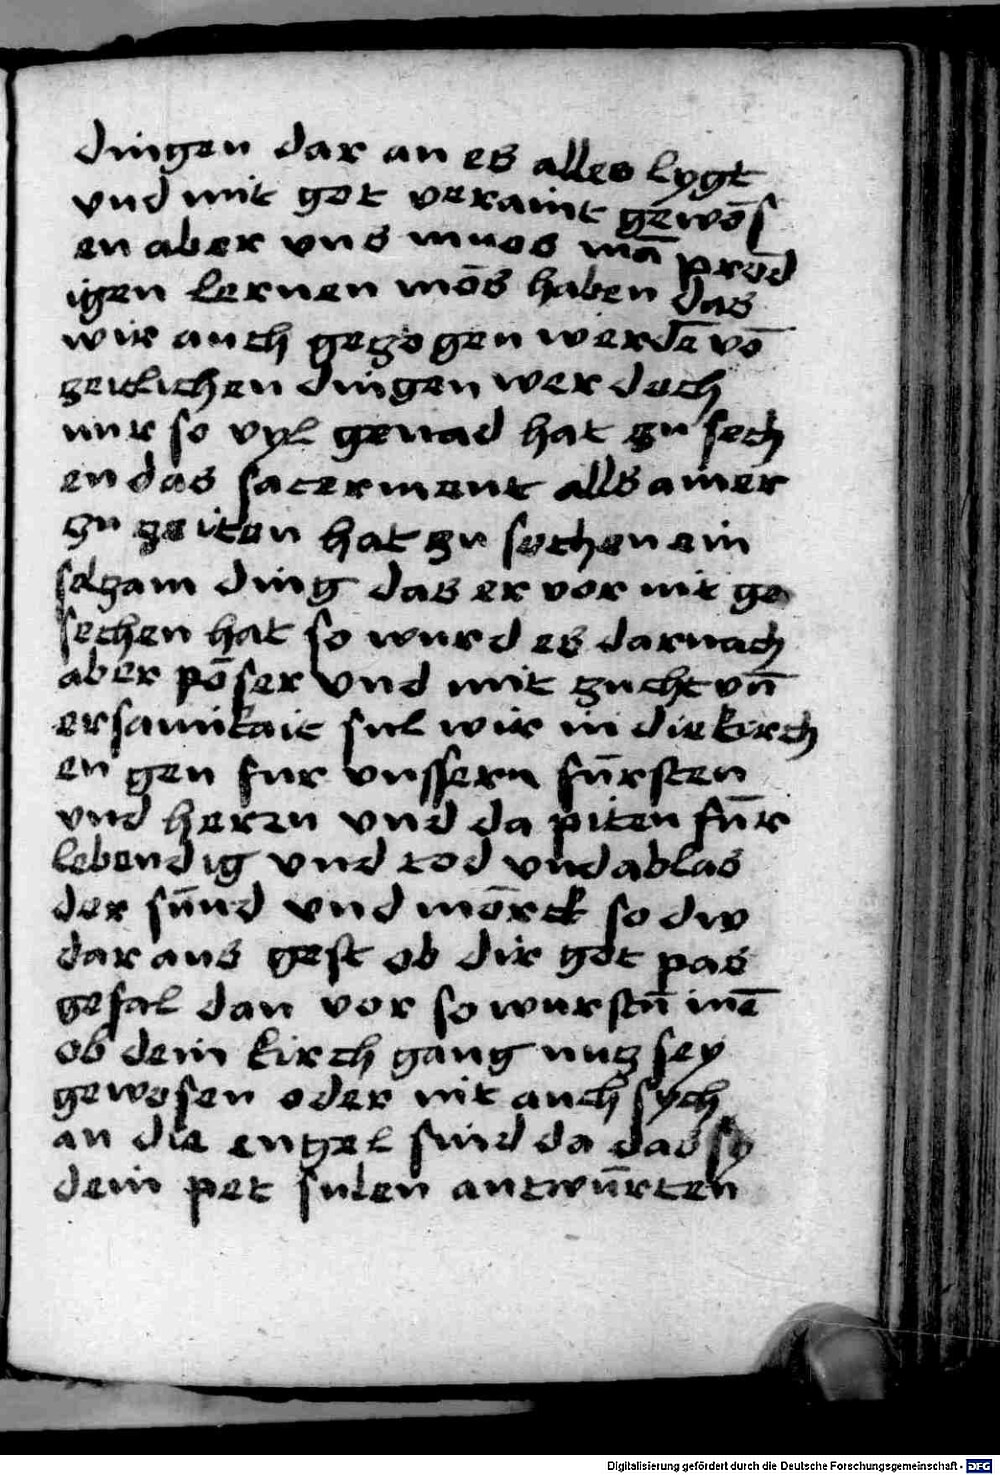 dingen dar an es alles lygt
vnd mit got veraint gewōs
en aber vns muos mā prōd
igen lernen mōs haben das
wir auch gezogen werdē vō
zeitlichen dingen wer doch
nur so vyl genad hat zu sech
en das sacerment alls ainer
zu zeiten hat zu sechen ein
selzam ding das er vor nit ge
sechen hat so wurd es darnach
aber pōser vnd mit zucht vn̄
ersamikait sul wir in die kirch
en gen fur vnssern fūrsten
vnd herrn vnd da piten fūr
lebendig vnd tod vnd ablas
der sūnd vnd mōrck so dw
dar aus gest ob dir got pas
gefal dan vor so wurstū inē
ob dein kirch gang nutz sey
gewesen oder nit auch sych
an die engel sind da das sy
dein pet sulen antwūrten
Digitalisierung gefördert durch die Deutsche Forschungsgemeinschaft - DFG